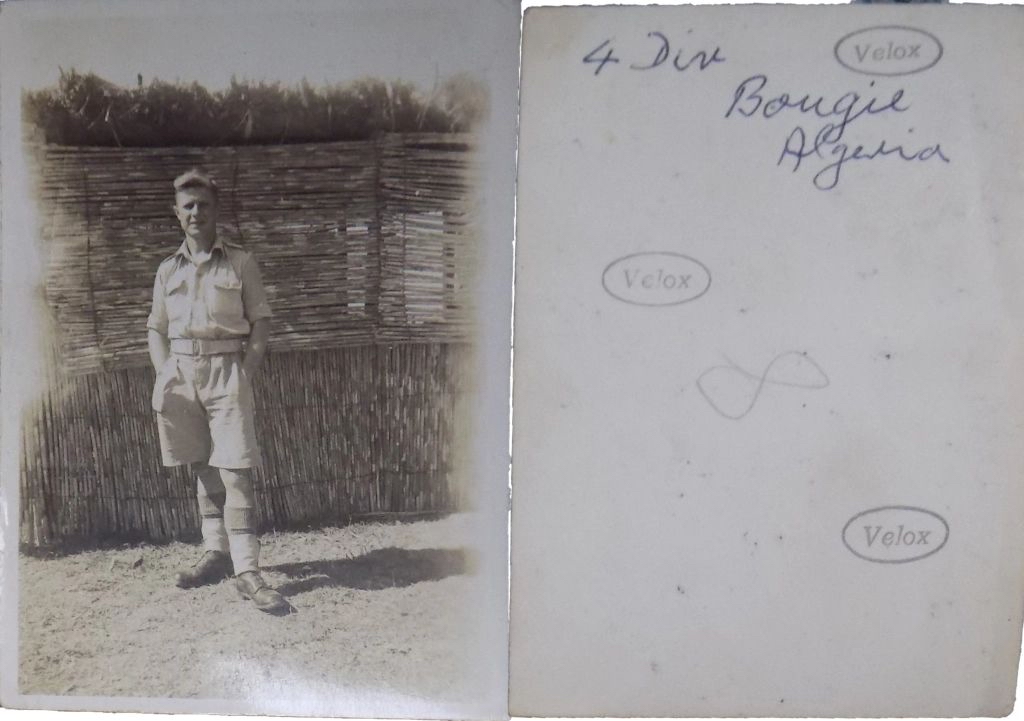 4 Div
Velox
Bougie
Algeria
Velox
Velox